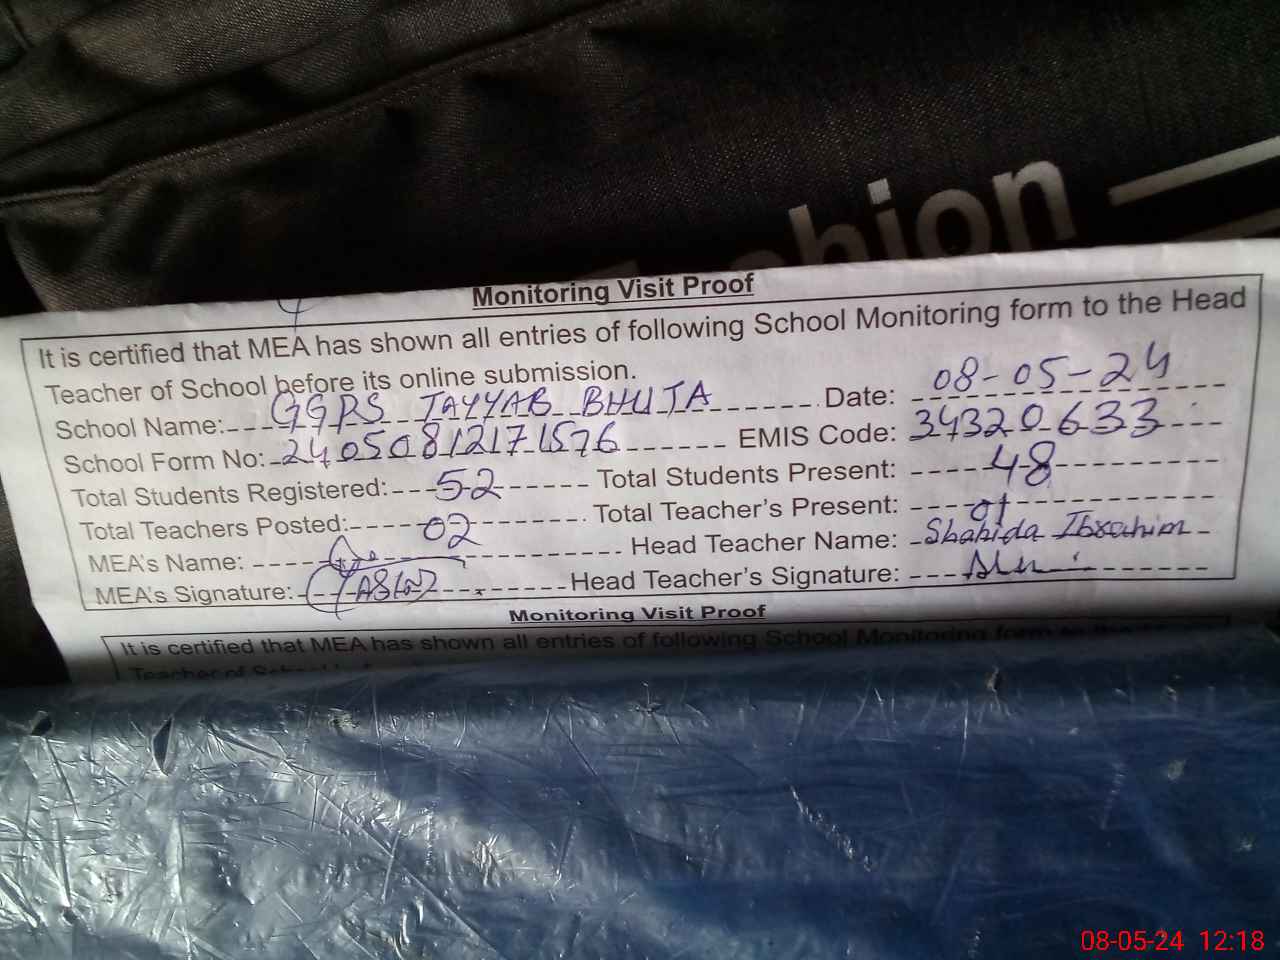 shion
Monitoring Visit Proof
It is certified that MEA has shown all entries of following School Monitoring form to the Head
Teacher of School before its online submission.
School Name: GGPS TAYYAB BHUTA Date: 08-05-24
School Form No: 24050812171576 EMIS Code: 34320633
Total Students Registered: 52 Total Students Present: 48
Total Teachers Posted: 02 Total Teacher's Present: 01
MEA's Name: Head Teacher Name: Shahida Ibrahim
MEA's Signature: Head Teacher's Signature:
Monitoring Visit Proof
It is certified that MEA has shown all entries of following School Monitoring form to the
Teacher of School
08-05-24 12:18